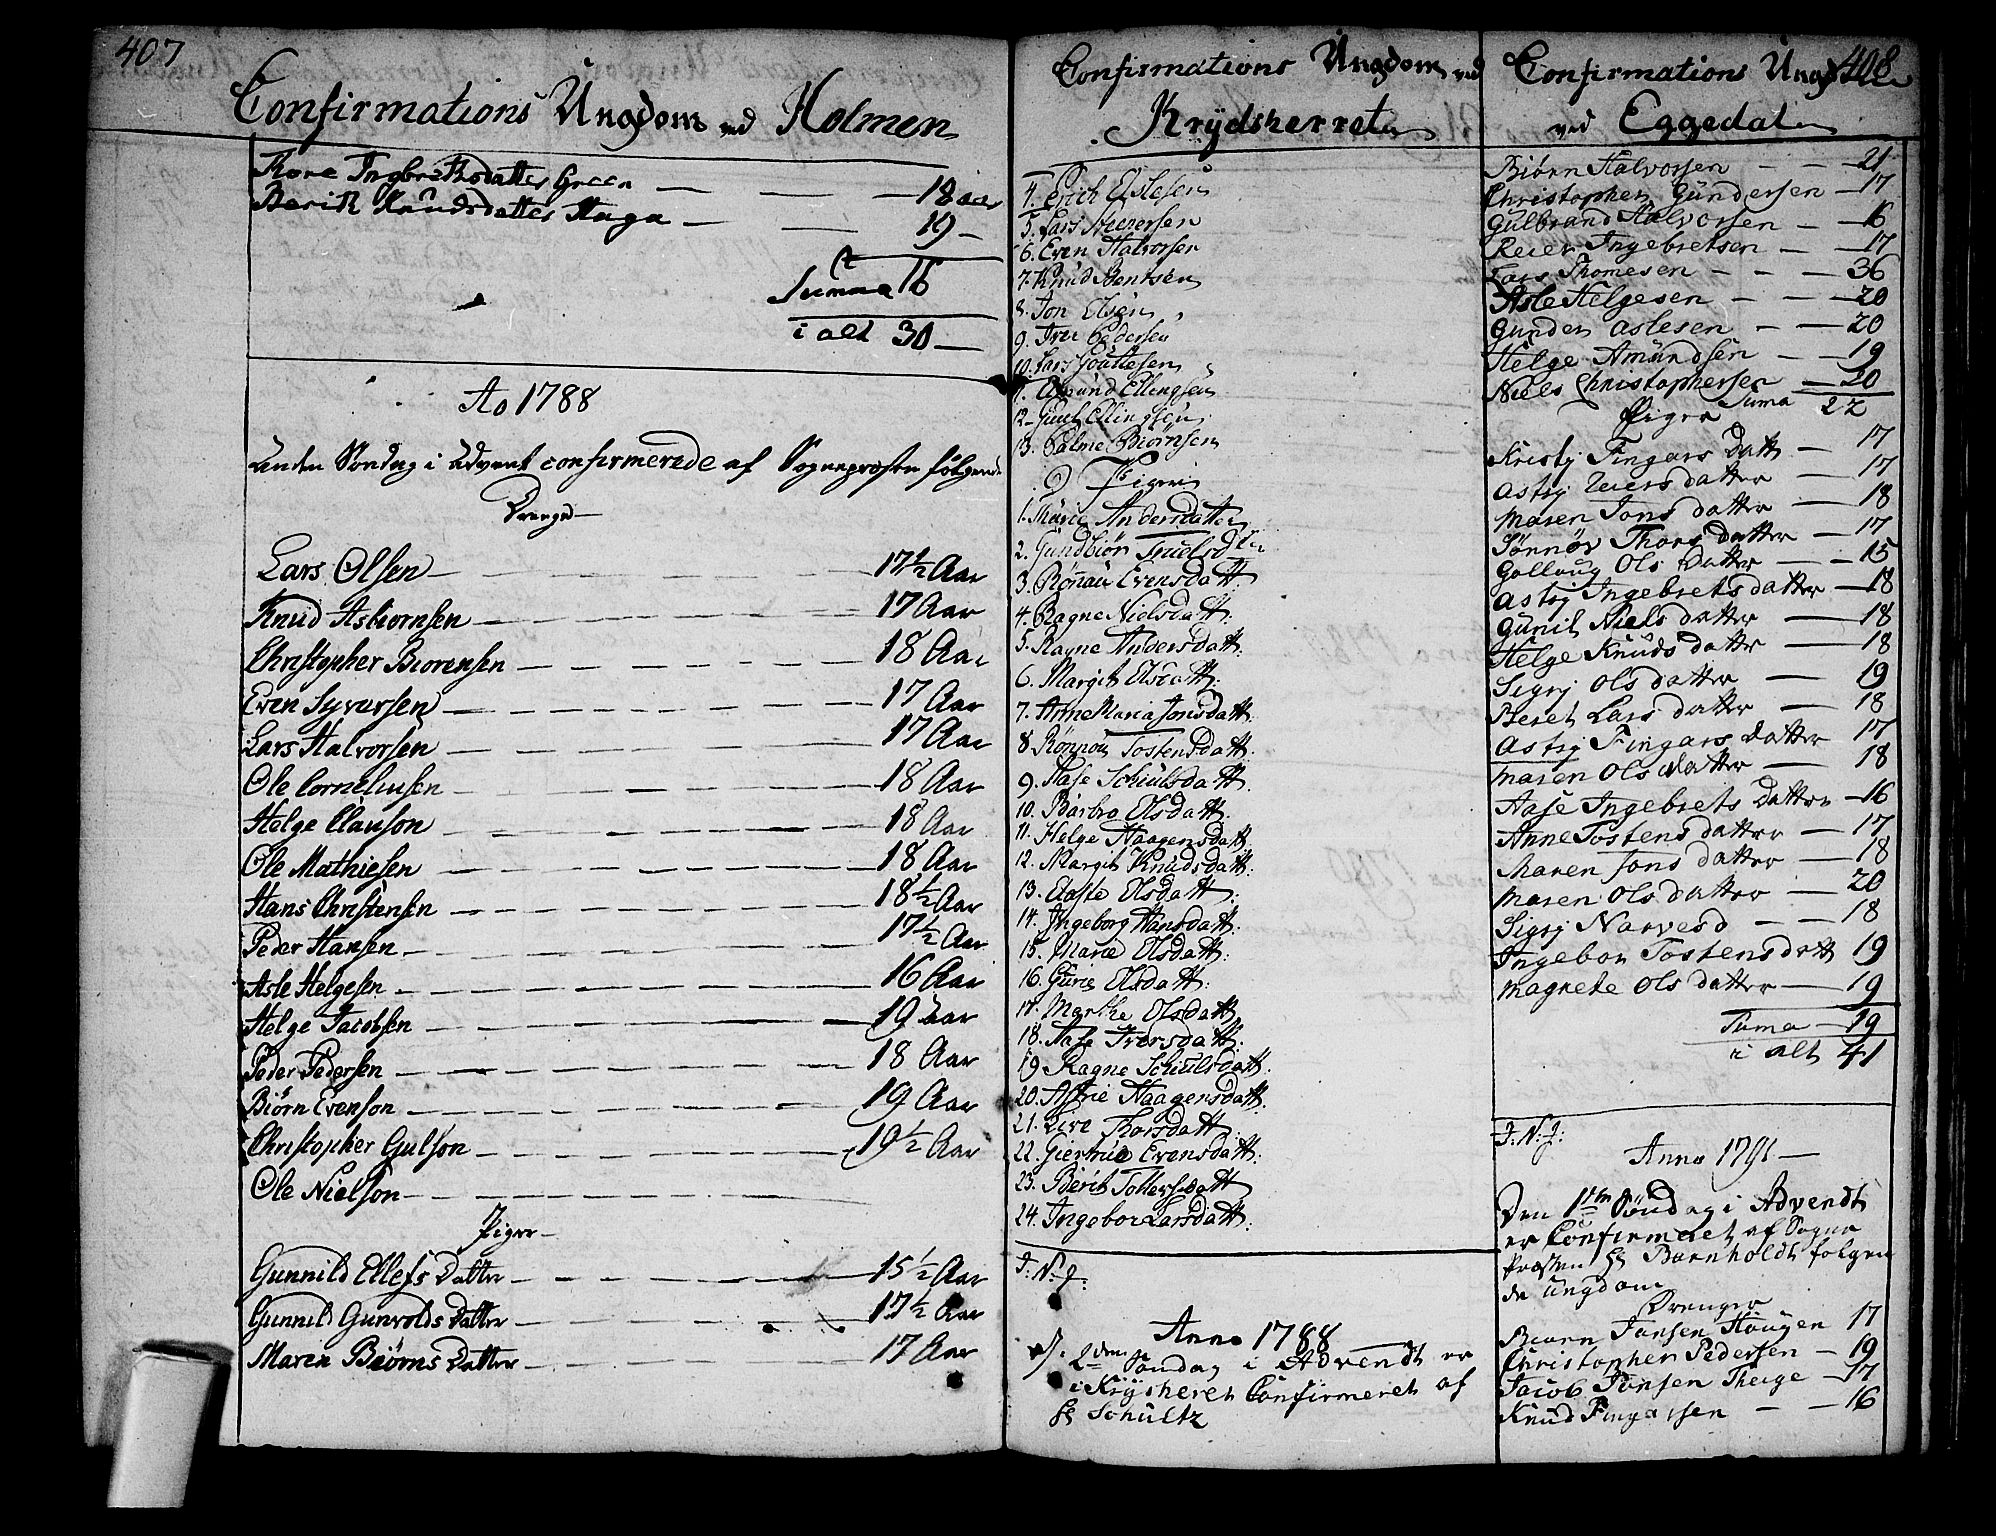 407
Confirmations Ungdom ved Holmen
Kore Ingbrethsdatter Green — 18 aar
Berith Knudsdatter Haga — 19 —
Summa 16
i alt 30 —
Ao 1788
Anden Søndag i Advent confirmerede af Sognepræsten følgende
Drenge —
Lars Olsen — 17 1/2 Aar
Knud Asbiørnsen — 17 Aar
Christopher Biorensen — 18 Aar
Even Syversen — 17 Aar
Lars Halvorsen — 17 Aar
Ole Corneliusen — 18 Aar
Helge Clauson — 18 Aar
Ole Mathiesen — 18 Aar
Hans Christensen — 18 1/2 Aar
Peder Hansen — 17 1/2 Aar
Asle Helgesen — 16 Aar
Helge Jacobsen — 19 aar
Peder Pedersen — 18 Aar
Biørn Evenson — 19 Aar
Christopher Gulson — 19 1/2 Aar
Ole Nielson —
Piger —
Gunnild Ellefs Datter — 15 1/2 Aar
Gunnild Gunvolds Datter — 17 1/2 Aar
Maren Biørns Datter — 17 Aar
Confirmations Ungdom ved
Krydsherret
4. Erich Ellefsen
5. Lars Siversen
6. Even Halvorsen
7. Knud Bentsen
8. Jon Olsen
9. Iver Pedersen
10. Lars Goattesen
11. Amund Ellingsen
12. Guul Ellingsen
13. Palme Biørnsen
Piger
1. Marie Andersdatter
2. Gundbiør Truelsdtr
3. Rønnau Evensdatt
4. Ragne Nielsdatt:
5. Ragne Andersdatt:
6. Margit Olsdatt:
7. Anne Maria Jonsdatt:
8. Rønnou Tostensdatt:
9. Aase Schiulsdatt:
10. Barbro Olsdatt:
11. Helge Haagensdatt:
12. Margit Knudsdatt:
13. Aaste Olsdatt:
14. Ingeborg Hansdatt:
15. Marie Olsdatt:
16. Gurie Olsdatt:
17. Marthe Olsdatt:
18. Aase Iversdatt:
19. Ragne Schiulsdatt:
20. Astrie Haagensdatt:
21. Live Thorsdatt:
22. Giertrue Evensdatt:
23. Berit Tollefsdatt:
24. Ingebor Larsdatt:
I. N. J:
Anno 1788
2den Søndag i Advendt er
i Krydsherret Confirmeret af
Hr Schultz
408
Confirmations Ungdom
ved Eggedal
Biørn Halvorsen — 21
Christopher Gundersen — 17
Gulbrand Halvorsen — 16
Reier Ingebretsen — 17
Lars Thomesen — 36
Asle Helgesen — 20
Gunder Aslesen — 20
Helge Amundsen — 19
Niels Christophersen — 20
Suma 22
Piger
Kristj Fingars Datt — 17
Astrj Reiers datter — 17
Maren Jons datter — 18
Sønnøv Thors datter — 17
Gollaug Ols Datter — 15
Astrj Ingebrets datter — 18
Gunil Niels datter — 18
Helge Knuds datter — 18
Sigrj Ols datter — 19
Beret Lars datter — 18
Astrj Fingars datter 17
Maren Ols datter — 18
Aase Ingebrets Datter — 16
Anne Tostens datter — 17
Maren Jons datter — 18
Maren Ols datter — 20
Sigrj Narvesd — 18
Ingebor Tostensdatt 19
Magnete Ols datter — 19
Suma — 19
i alt 41
I. N. J:
Anno 1791 —
Den 1ste Søndag i Advendt
er Confirmeret af Sogne
Præsten Hr Barnholdt følgen
de ungdom
Drenger
Biørn Jonsen Hougen 17
Christopher Pedersen — 19
Jacob Jonsen Theige — 17
Knud Fingarsen — 16